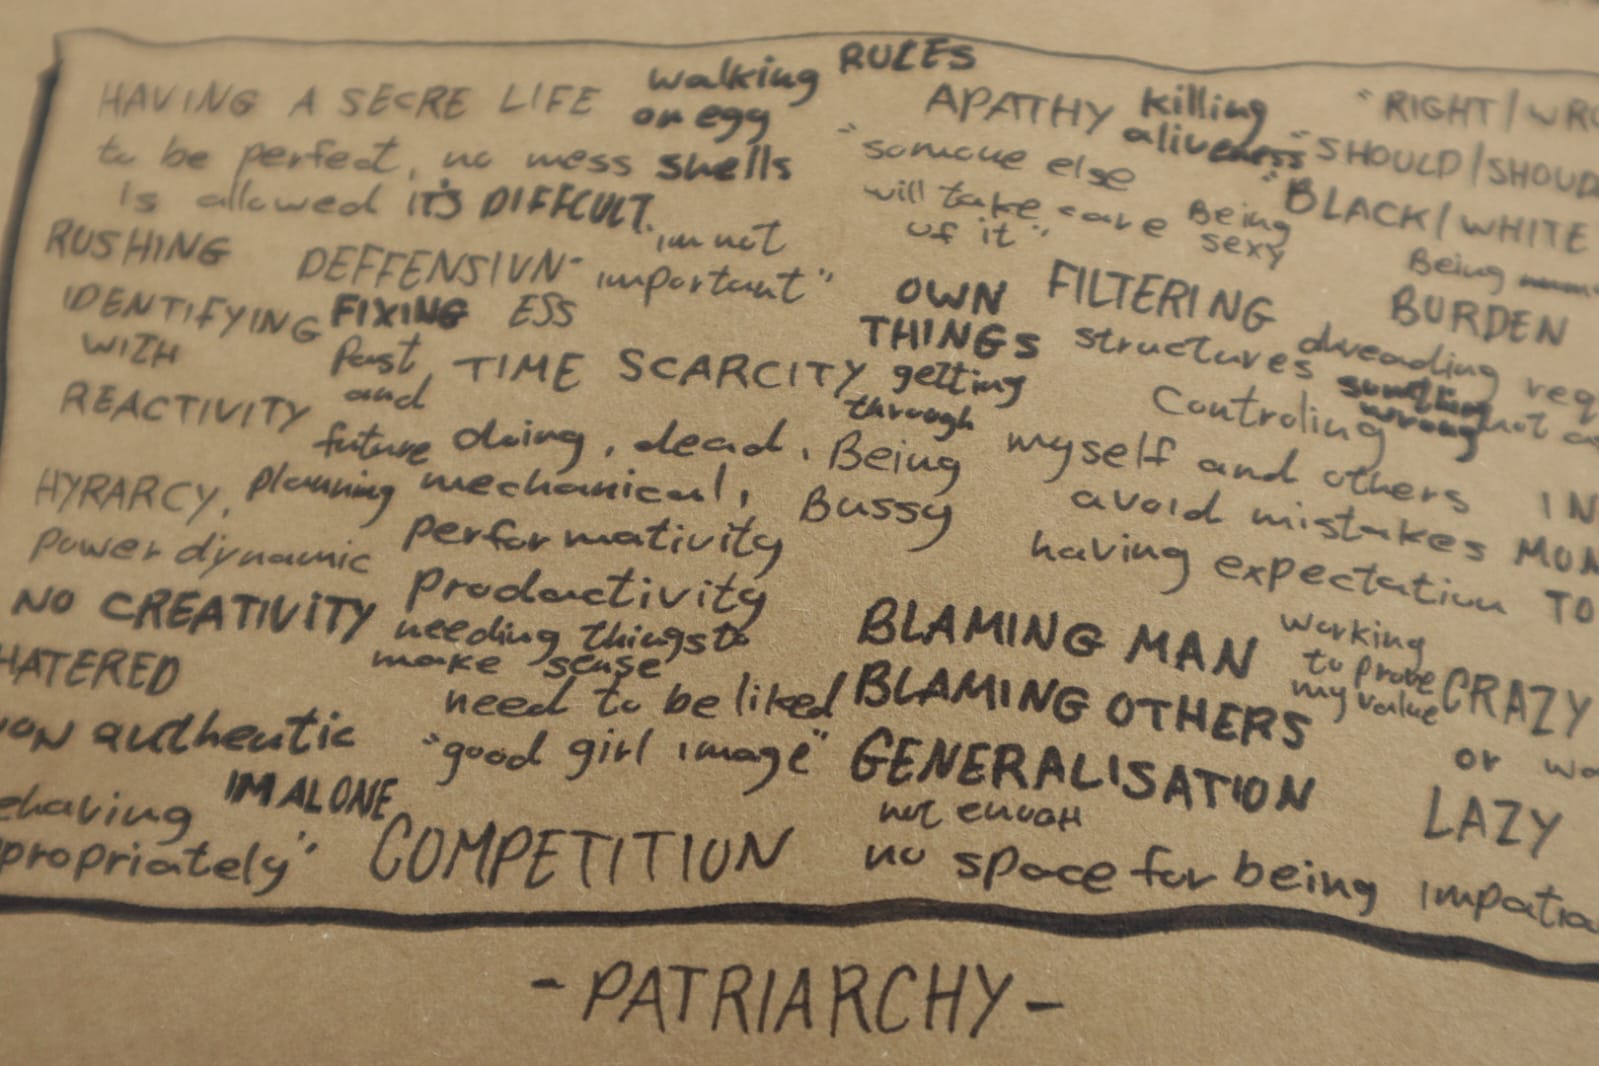 RULES
HAVING A SECRE LIFE
walking
on egg
shells
to be perfect, no mess
is allowed IT'S DIFFCULT.
APATHY
killing
aliveness
"RIGHT/WRO
"SHOULD/SHOUD
"BLACK/WHITE
"somoue else
will take care
of it"
Being
sexy
Being
RUSHING
DEFFENSIVN-
ESS
im not
important"
IDENTIFYING
WITH
REACTIVITY
FIXING
Past
and
future
planning
TIME SCARCITY
OWN
THINGS
getting
through
FILTERING
structures
BURDEN
dreading
something
wrong
req
not
Controling
myself and others
avoid mistakes
having expectation
IN
MON
TO
doing, dead,
mechanical,
Being
Bussy
HYRARCY,
power dynamic
performativity
Productivity
NO CREATIVITY
needing things to
make sense
HATERED
need to be liked
BLAMING MAN
BLAMING OTHERS
working
to probe
my value
CRAZY
or
LAZY
ON authentic
"good girl image"
GENERALISATION
ehaving
propriately"
IM ALONE
COMPETITION
not enuoH
no space for being
impatia
-PATRIARCHY-